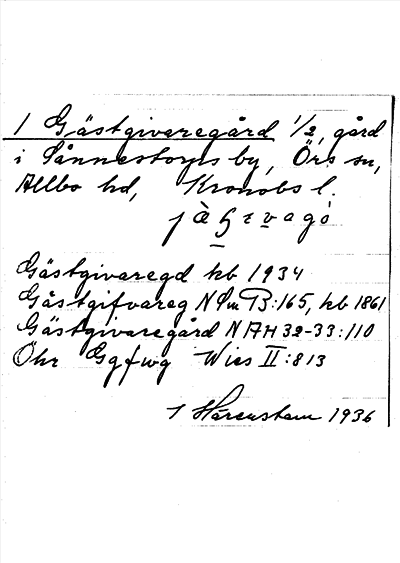 1 Gästgivaregård 1/2, gård
i Sånnestorps by, Örs sn,
Allbo hd, Kronobs l.
Gästgivaregd kb 1934
Gästgifvareg NSm B:165, kb 1861
Gästgivaregård NAH 32-33:110
Öhr Wies II:813
1 Hårenstam 1936